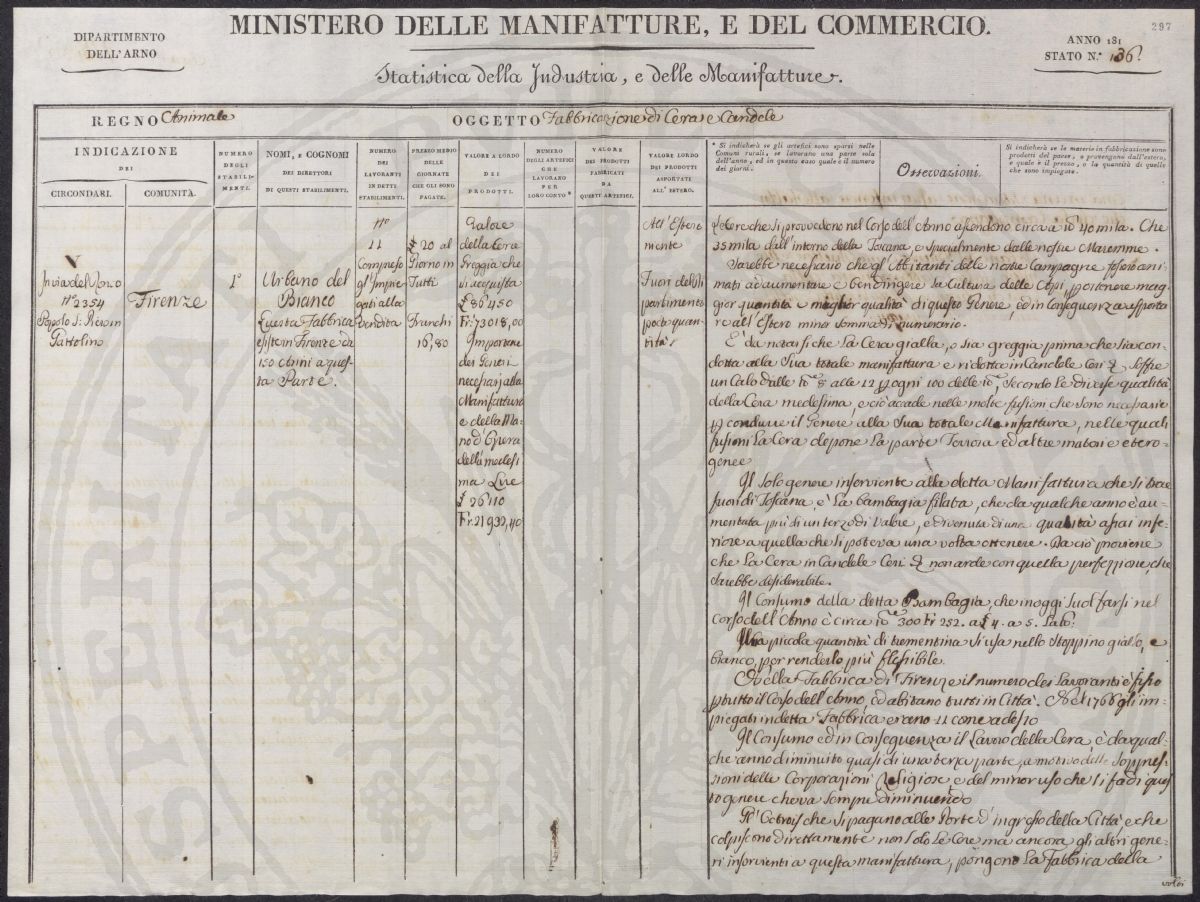 297
DIPARTIMENTO
DELL'ARNO
MINISTERO DELLE MANIFATTURE, E DEL COMMERCIO.
ANNO 181
STATO N.° 136.
Statistica della Industria, e delle Manifatture.
REGNO Animale
OGGETTO Fabbricazione di Cera e Candele
INDICAZIONE
DEI
CIRCONDARI.
COMUNITÀ.
NUMERO
DEGLI
STABILI-
MENTI.
NOMI, E COGNOMI
DEI DIRETTORI
DI QUESTI STABILIMENTI.
NUMERO
DEI
LAVORANTI
IN DETTI
STABILIMENTI.
PREZZO MEDIO
DELLE
GIORNATE
CHE GLI SONO
PAGATE.
VALORE A LORDO
DEI
PRODOTTI.
NUMERO
DEGLI ARTEFICI
CHE
LAVORANO
PER
LORO CONTO *
VALORE
DEI PRODOTTI
FABBRICATI
DA
QUESTI ARTEFICI.
VALOR LORDO
DEI PRODOTTI
ASPORTATI
ALL'ESTERO.
* Si indicherà se gli artefici sono sparsi nelle
Comuni rurali, se lavorano una parte sola
dell'anno, ed in questo caso quale è il numero
dei giorni.
Osservazioni.
Si indicherà se le materie in fabbricazione sono
prodotti del paese, o provengono dall'estero,
e quale è il prezzo, o la quantità di quelle
che sono impiegate.
In via del
N° 2354
Popolo S:
Gattolino
Firenze
1°
Urbano del
Bianco
Questa Fabbrica
esiste in Firenze da
150 anni a ques-
ta Parte.
N°
11
Compreso
gl'Impie
gati alla
Vendita
20 al
Giorno in
Tutti
Franchi
16,80
Valore
della Cera
Greggia che
si acquista
£ 86450
Fr: 73018,00
Importare
dei Generi
necessarj alla
Manifattura
e della Ma-
no d'Opera
della medesi
ma Lire
£ 26110
Fr. 21932,40
All'Estero
niente
Fuori del Di
partimento
poca quan-
tità
Le Cere che si provvedono nel Corso dell'Anno ascendono circa a 40 mila. Che
35 mila dall'interno della Toscana, e specialmente dalle nostre Maremme.
Sarebbe necessario che gl'Abitanti delle nostre Campagne fossero ani-
mati ad aumentare e ben dirigere la Cultura delle Api, per ottenere mag-
gior quantità e miglior qualità di questo Genere, ed in conseguenza esporta
re all'Estero minor somma di numerario.
È da notarsi che La Cera gialla, o sia greggia prima che sia con-
dotta alla Sua totale manifattura e ridotta in Candele Ceri &, Soffre
un Calo dalle 8 alle 12 p ogni 100 delle, Secondo Le diverse qualità
della Cera medesima, e ciò accade nelle molte fusioni che sono necessarie
p condurre il Genere alla Sua totale Manifattura, nelle quali
fusioni La Cera depone La parte Terrosa ed altre materie etero-
genee
Il Solo genere inserviente alla detta Manifattura che si trae
fuori di Toscana, è La bambagia filata, che da qualche anno è au-
mentata più di un terzo di Valore, e divenuta di una qualità assai infe-
riore a quella che si poteva una volta ottenere. Da ciò proviene
che La Cera in Candele Ceri & non arde con quella perfezione, che
sarebbe desiderabile.
Il Consumo della detta Bambagia, che in oggi suol farsi nel
corso dell'Anno è circa 300 Fr 252. a £ 4. a 5. La
Una piccola quantità di trementina si usa nello Stoppino giallo, e
bianco, per renderlo più flessibile.
Nella Fabbrica di Firenze il numero dei Lavoranti è fisso
p tutto il Corso dell'Anno, ed abitano tutti in Città. Nel 1766 gl'im-
piegati in detta Fabbrica erano 11 come adesso
Il Consumo ed in Conseguenza il Lavoro della Cera, è da qual-
che anno diminuito quasi di una terza parte, a motivo delle Soppres-
sioni delle Corporazioni Religiose, e del minor uso che si fa di ques
to genere che va sempre diminuendo
Gl'Octrois che si pagano alle Porte d'ingresso della Città e che
colpiscono direttamente non Solo Le Cere ma ancora gli altri gene-
ri inservienti a questa manifattura, pongono La Fabbrica della